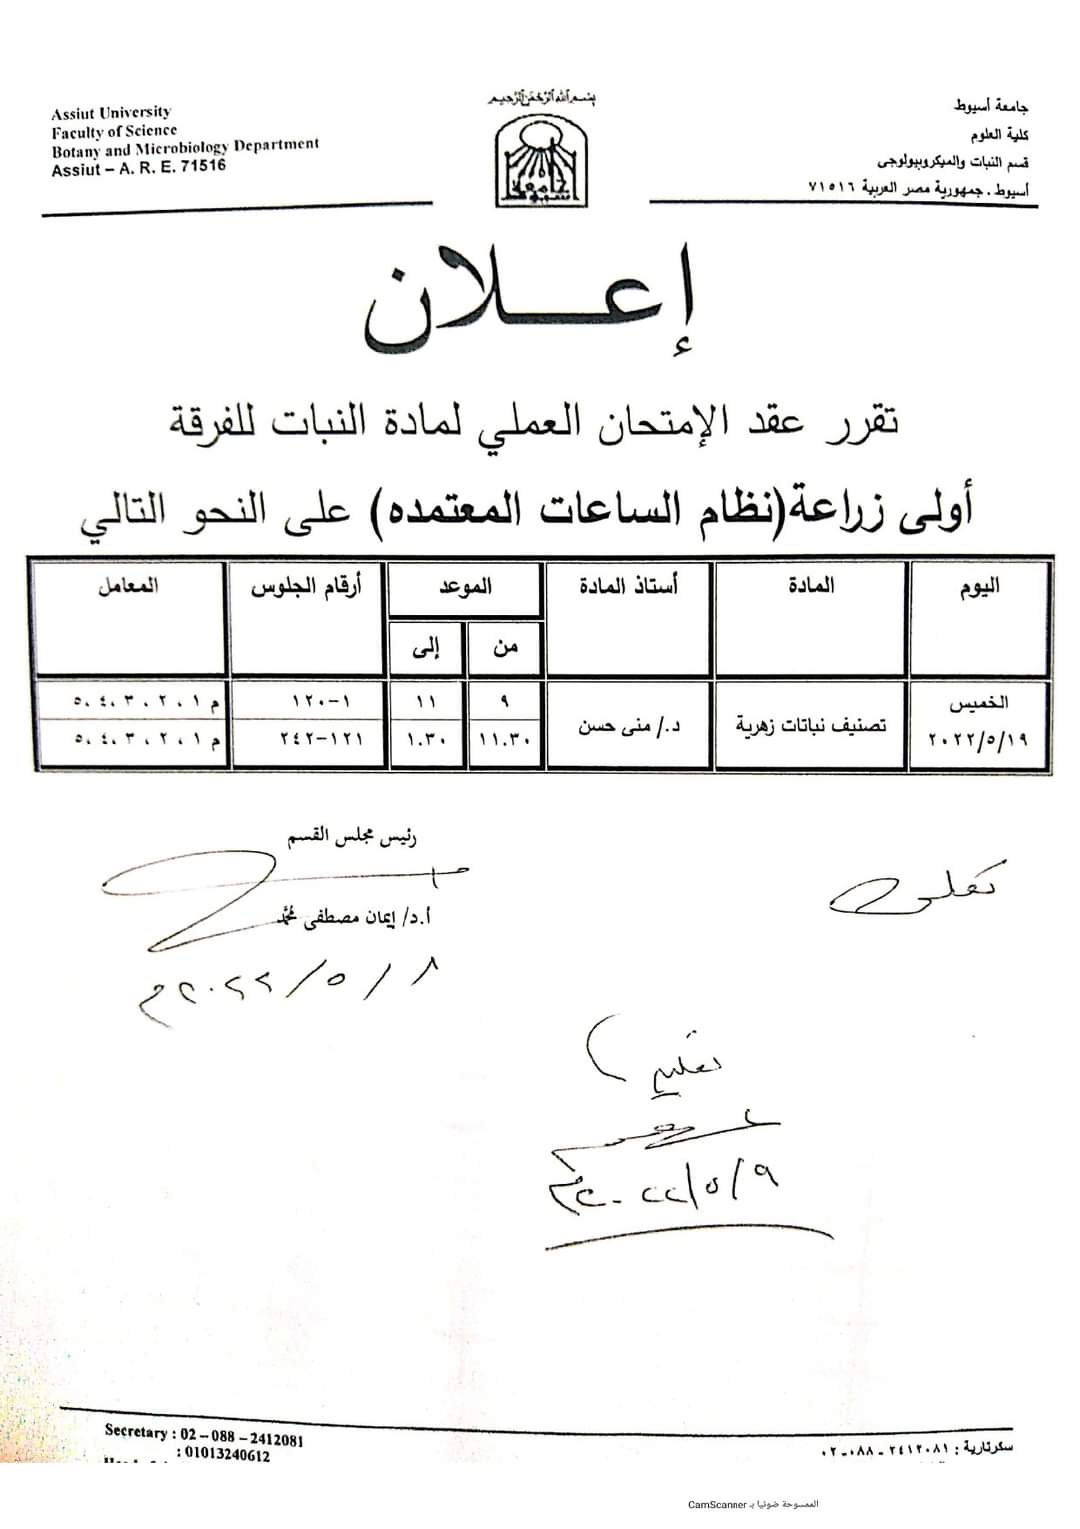 Assiut University
Faculty of Science
Botany and Microbiology Department
Assiut – A. R. E. 71516
بسم الله الرحمن الرحيم
جامعة أسيوط
جامعة أسيوط
كلية العلوم
قسم النبات والميكروبيولوجى
أسيوط . جمهورية مصر العربية ٧١٥١٦
إعـــلان
تقرر عقد الإمتحان العملي لمادة النبات للفرقة
أولى زراعة(نظام الساعات المعتمده) على النحو التالي
اليوم المادة أستاذ المادة الموعد أرقام الجلوس المعامل
من إلى
الخميس ٢٠٢٢/٥/١٩ تصنيف نباتات زهرية د./ منى حسن
٩ ١١ ١-١٢٠ م ١، ٢، ٣، ٤، ٥
١١.٣٠ ١.٣٠ ١٢١-٢٤٢ م ١، ٢، ٣، ٤، ٥
رئيس مجلس القسم
أ.د/ إيمان مصطفى محمد
٨ / ٥ / ٢٠٢٢م
٩/٥/٢٠٢٢م
Secretary : 02 – 088 – 2412081
: 01013240612
سكرتارية : ٢٤١٢٠٨١ - ٠٨٨ - ٠٢
الممسوحة ضوئيا بـ CamScanner